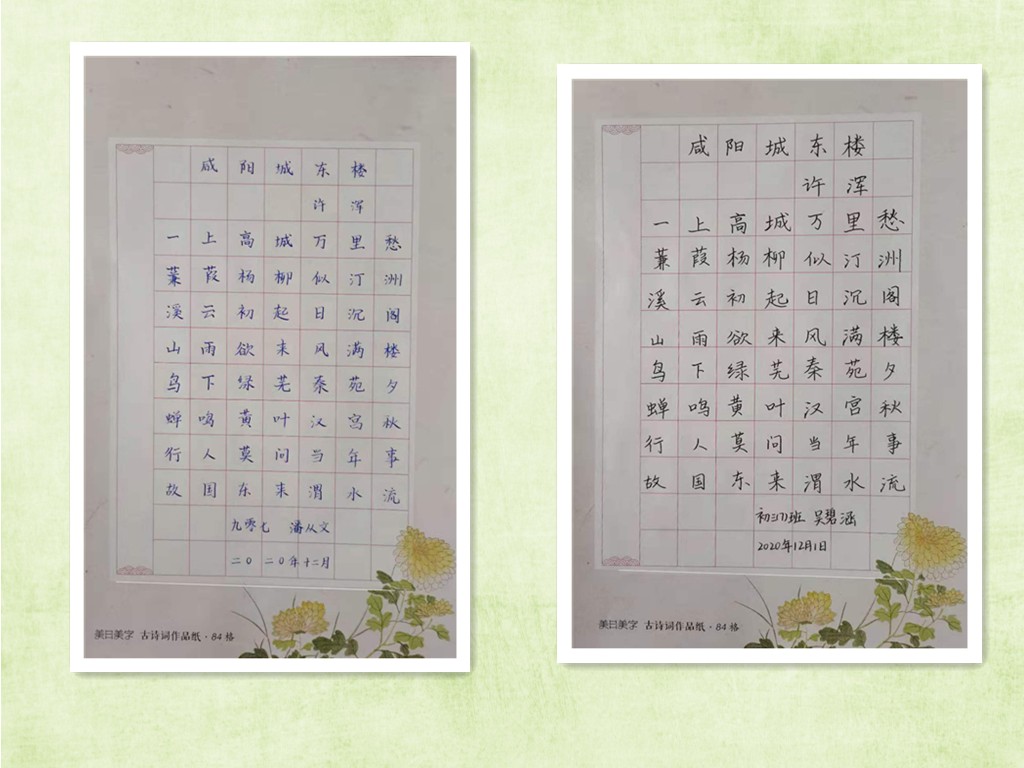 咸阳城东楼
许浑
一上高城万里愁
蒹葭杨柳似汀洲
溪云初起日沉阁
山雨欲来风满楼
鸟下绿芜秦苑夕
蝉鸣黄叶汉宫秋
行人莫问当年事
故国东来渭水流
九零七 潘从文
二〇二〇年十二月
美日美字 古诗词作品纸·84格
咸阳城东楼
许浑
一上高城万里愁
蒹葭杨柳似汀洲
溪云初起日沉阁
山雨欲来风满楼
鸟下绿芜秦苑夕
蝉鸣黄叶汉宫秋
行人莫问当年事
故国东来渭水流
初三(7)班 吴碧涵
2020年12月1日
美日美字 古诗词作品纸·84格